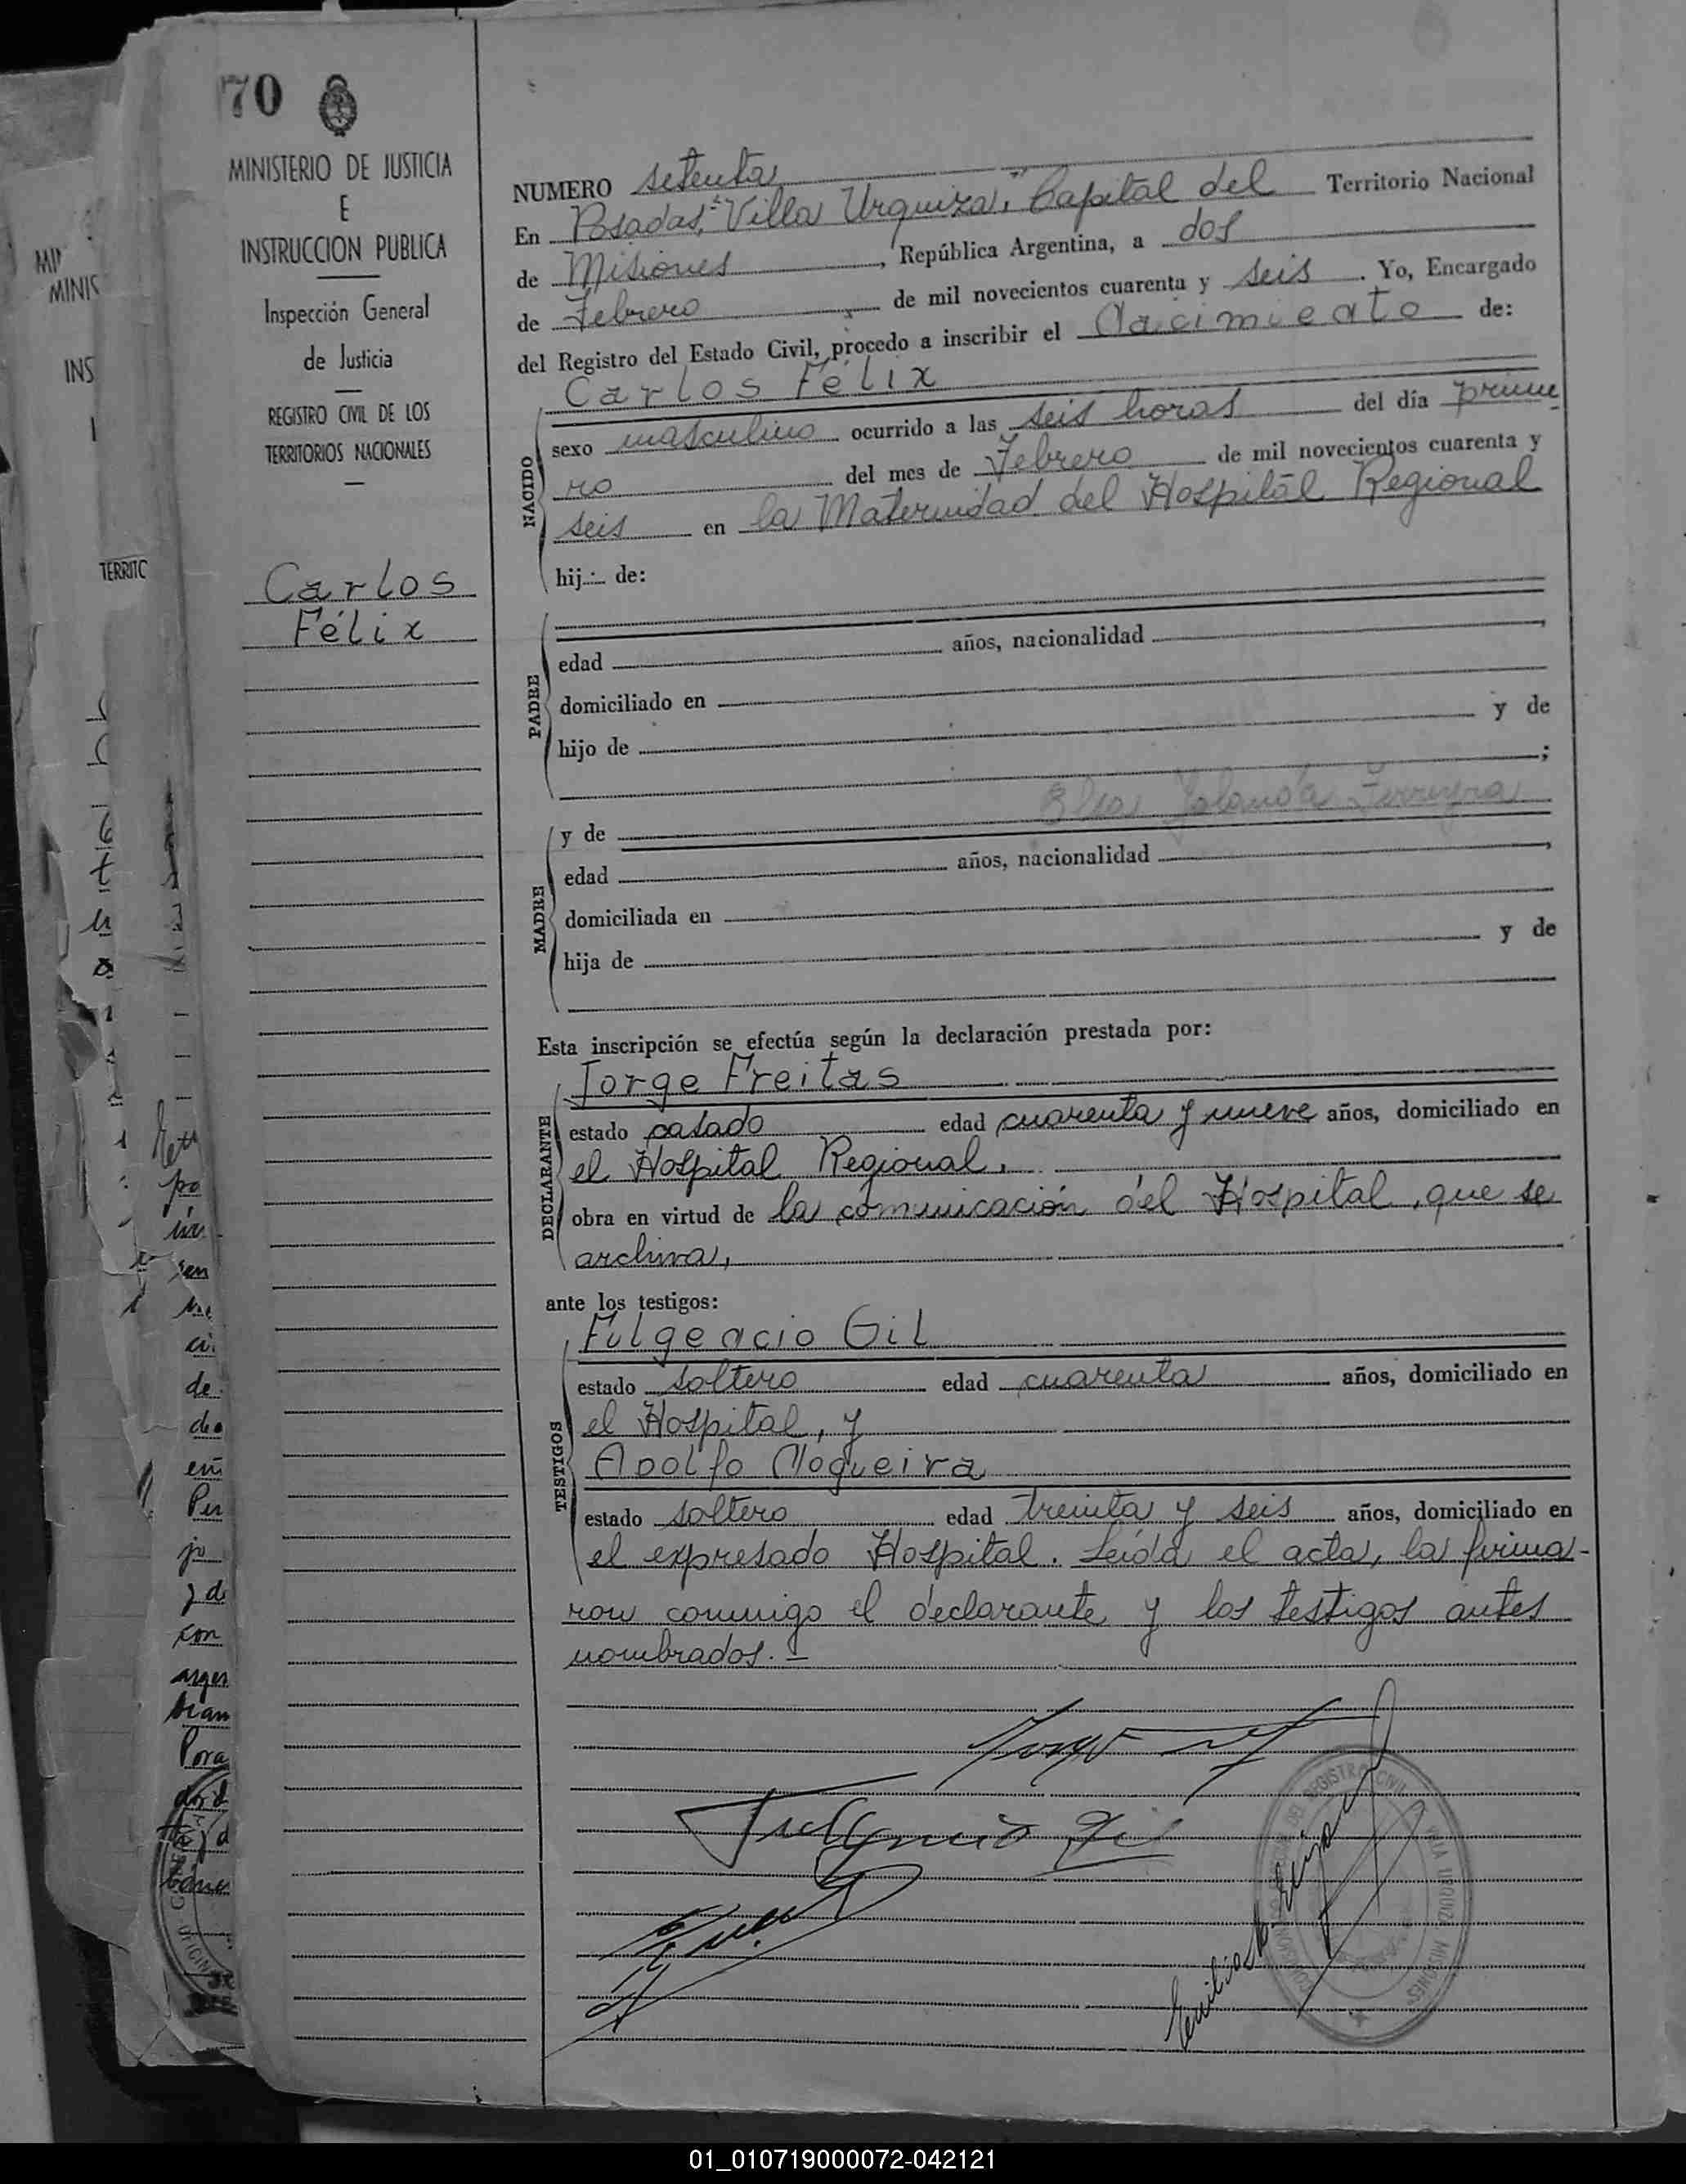 70
MINISTERIO DE JUSTICIA
E
INSTRUCCION PUBLICA
Inspección General
de Justicia
REGISTRO CIVIL DE LOS
TERRITORIOS NACIONALES
Carlos
Félix
NUMERO setenta
En Posadas, "Villa Urquiza", Capital del Territorio Nacional
de Misiones, República Argentina, a dos
de Febrero de mil novecientos cuarenta y seis. Yo, Encargado
del Registro del Estado Civil, procedo a inscribir el Nacimiento de:
Carlos Félix
NACIDO
sexo masculino ocurrido a las seis horas del día prime
ro del mes de Febrero de mil novecientos cuarenta y
seis en la Maternidad del Hospital Regional
hij de:
PADRE
edad años, nacionalidad
domiciliado en
hijo de y de
;
MADRE
y de Elsa Yolanda Ferreyra
edad años, nacionalidad ,
domiciliada en
hija de y de
Esta inscripción se efectúa según la declaración prestada por:
DECLARANTE
Jorge Freitas
estado casado edad cuarenta y nueve años, domiciliado en
el Hospital Regional.
obra en virtud de la comunicación del Hospital, que se
archiva,
ante los testigos:
TESTIGOS
Fulgencio Gil
estado soltero edad cuarenta años, domiciliado en
el Hospital, y
Adolfo Nogueira
estado soltero edad treinta y seis años, domiciliado en
el expresado Hospital. Leída el acta, la firma-
ron conmigo el declarante y los testigos antes
nombrados.-
Fulgencio Gil
REGISTRO CIVIL
VILLA URQUIZA MISIONES
01_010719000072-042121